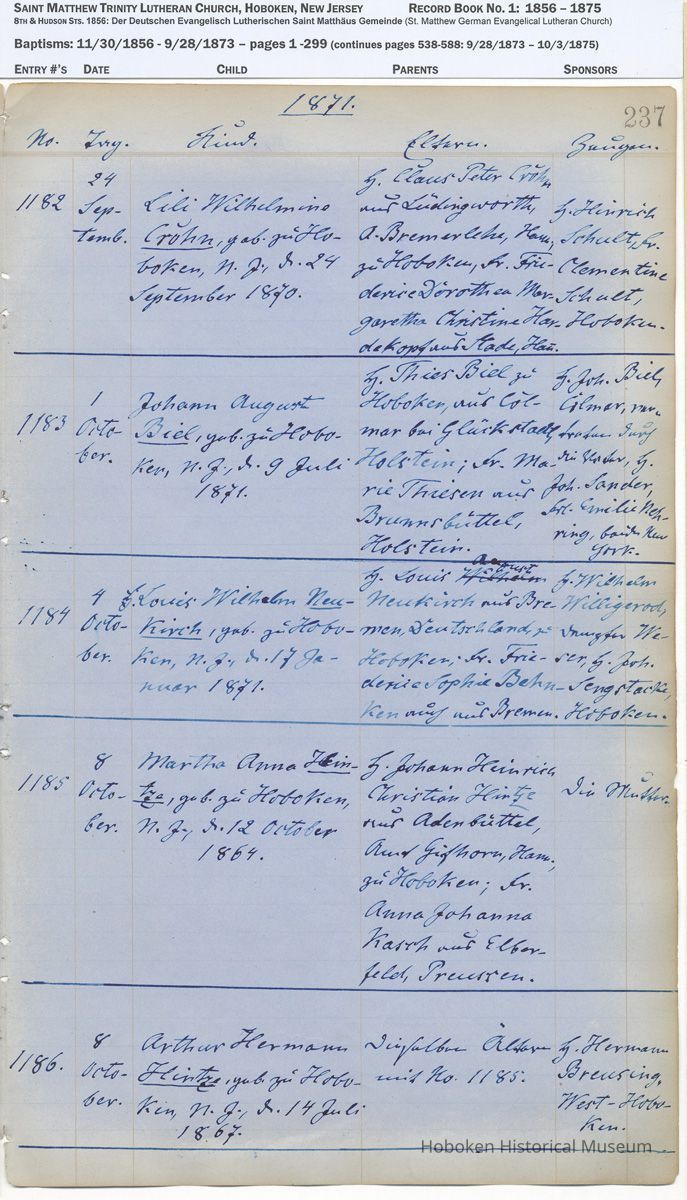 SAINT MATTHEW TRINITY LUTHERAN CHURCH, HOBOKEN, NEW JERSEY RECORD BOOK NO. 1: 1856 – 1875
8TH & HUDSON STS. 1856: Der Deutschen Evangelisch Lutherischen Saint Matthäus Gemeinde (St. Matthew German Evangelical Lutheran Church)
Baptisms: 11/30/1856 - 9/28/1873 – pages 1 -299 (continues pages 538-588: 9/28/1873 – 10/3/1875)
ENTRY #'S DATE CHILD PARENTS SPONSORS
1871.
237
No. Tag. Kind. Eltern. Zeugen.
1182
24
Sep-
temb.
Lili Wilhelmine
Cröhn, geb. zu Ho-
boken, N. J., d. 24
September 1870.
H. Claus Peter Cröhn
aus Lüdingworth,
A. Bremerlehe, Han.,
zu Hoboken, Fr. Frie-
derice Dorothea Mar-
garetha Christine Har-
dekopf aus Stade, Han.
H. Hinrich
Schult, Fr.
Clementine
Schult,
Hoboken.
1183
1
Octo-
ber.
Johann August
Biel, geb. zu Hobo-
ken, N. J., d. 9 Juli
1871.
H. Thies Biel zu
Hoboken, aus Col-
mar bei Glückstadt,
Holstein; Fr. Ma-
rie Thiesen aus
Brunsbüttel,
Holstein.
H. Joh. Biel,
Colmar, ver-
treten durch
die Vater, H.
Joh. Sander,
Frl. Emilie Neh-
ring, beide New
York.
1184
4
Octo-
ber.
H. Louis Wilhelm Neu-
kirch, geb. zu Hobo-
ken, N. J., d. 17 Ja-
nuar 1871.
August
H. Louis Wilhelm
Neukirch aus Bre-
men, Deutschland, zu
Hoboken; Fr. Frie-
derice Sophie Behn-
ken auch aus Bremen.
H. Wilhelm
Willigerod,
Dampfer We-
ser, H. Joh.
Sengstacke,
Hoboken.
1185
8
Octo-
ber.
Martha Anna Hein-
tze, geb. zu Hoboken,
N. J., d. 12 October
1864.
H. Johann Heinrich
Christian Hintze
aus Adenbüttel,
Amt Gifhorn, Hann.,
zu Hoboken; Fr.
Anna Johanna
Kasch aus Elber-
feld, Preussen.
Die Mutter.
1186.
8
Octo-
ber.
Arthur Hermann
Hintze, geb. zu Hobo-
ken, N. J., d. 14 Juli
1867.
Dieselben Ältern
mit No. 1185.
H. Hermann
Breusing,
West-Hobo-
ken.
Hoboken Historical Museum